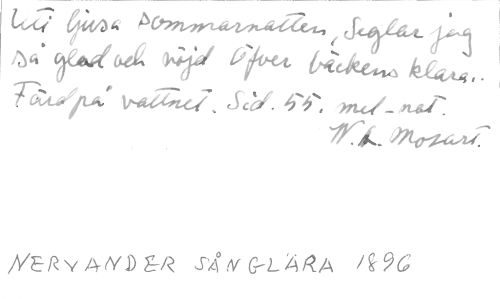 Uti ljusa sommarnatten, Seglar jag
så glad och nöjd Öfver bäckens klara..
Färd på vattnet. Sid. 55. mel-not.
W. A. Mozart.
NERVANDER SÅNGLÄRA 1896